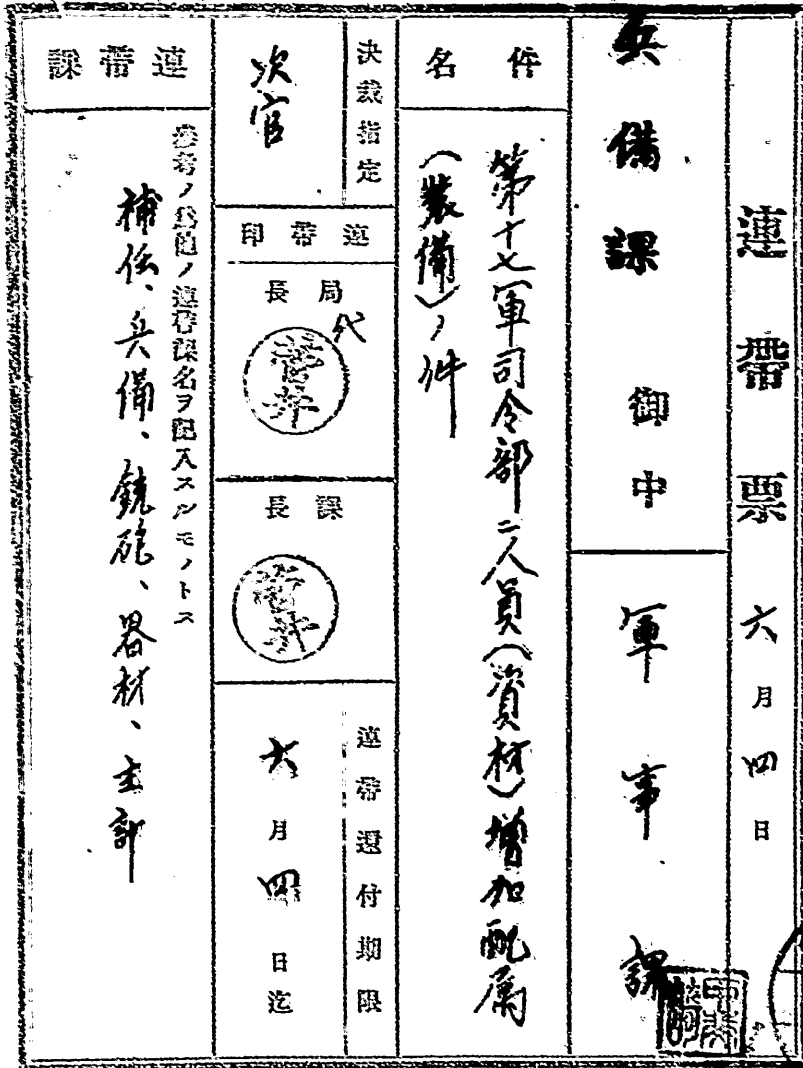 連帶票 六月四日
兵備課 御中
軍事課
件名
第十七軍司令部ニ人員(資材)增加配属
(裝備)ノ件
決裁指定
次官
連帶印
局長
代
菅井
課長
菅井
連帶還付期限
六月四日迄
連帶課
參考ノ爲他ノ連帶課名ヲ記入スルモノトス
補任、兵備、銃砲、器材、主計